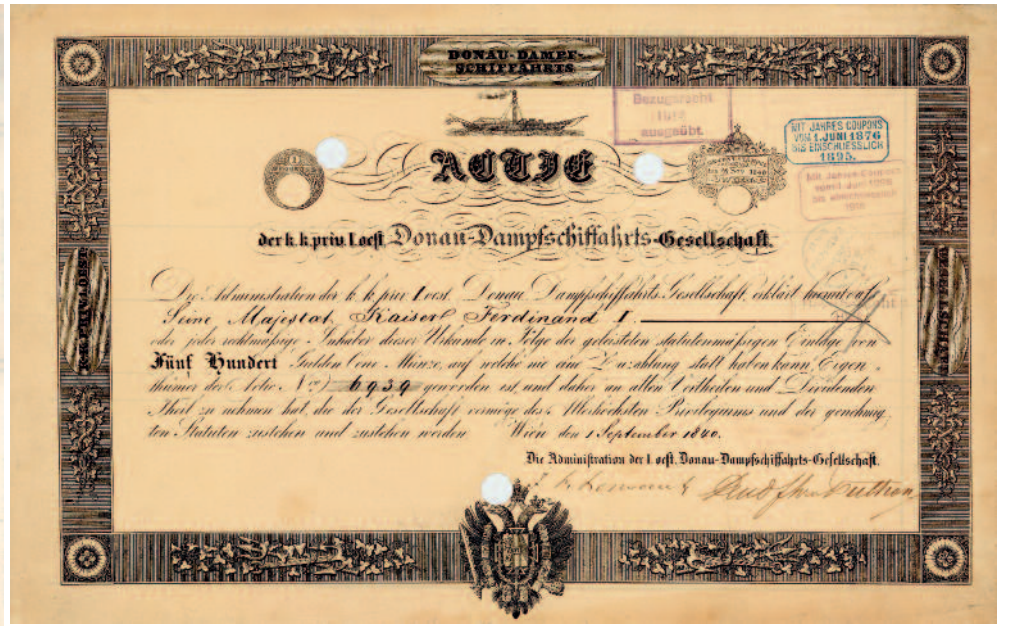 DONAU-DAMPF-
SCHIFFAHRTS
Bezugsrecht
ausgeübt.
MIT JAHRES COUPONS
VOM 1. JUNI 1876
BIS EINSCHLIESSLICH
1895.
Mit Jahres-Coupons
ACTIE
der k. k. priv. I. oest. Donau-Dampfschiffahrts-Gesellschaft.
Die Administration der k. k. priv. I. oest. Donau-Dampfschiffahrts-Gesellschaft, erklärt hiermit daß
Seine Majestät, Kaiser Ferdinand I
oder jeder rechtmäßige Inhaber dieser Urkunde in Folge der geleisteten statutenmäßigen Einlage von
Fünf Hundert Gulden Conv. Münze, auf welche nie eine Zuzahlung statt haben kann, Eigen-
thümer der Actie Nro. 6939 geworden ist und daher an allen Vortheilen und Dividenden
Theil zu nehmen hat, die der Gesellschaft vermöge des Allerhöchsten Privilegiums und der genehmig-
ten Statuten zustehen und zustehen werden. Wien den 1 September 1840.
Die Administration der I. oest. Donau-Dampfschiffahrts-Gesellschaft.
K.K. PRIV. I. OEST.
GESELLSCHAFT